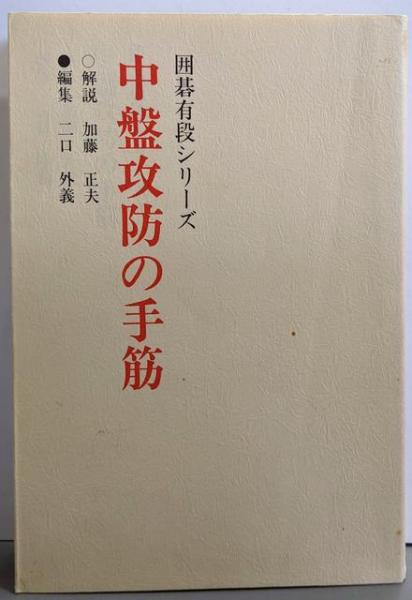 囲碁有段シリーズ
中盤攻防の手筋
○解説 加藤 正夫
●編集 二口 外義